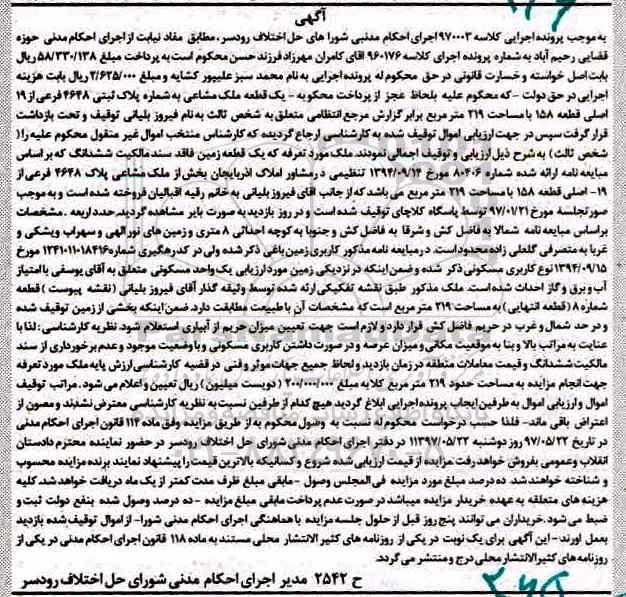 آگهی
به موجب پرونده اجرایی کلاسه ۹۷۰۰۰۳ اجرای احکام مدنی شورا های حل اختلاف رودسر، مطابق مفاد نیابت از اجرای احکام مدنی حوزه
قضایی رحیم آباد به شماره پرونده اجرای کلاسه ۹۶۰۱۷۶ آقای کامران مهرزاد فرزند حسن محکوم است به پرداخت مبلغ ۵۸/۳۳۰/۱۳۸ ریال
بابت اصل خواسته و خسارت قانونی در حق محکوم له پرونده اجرایی به نام محمد سبز علیپور کشایه و مبلغ ۲/۶۲۵/۰۰۰ ریال بابت هزینه
اجرایی در حق دولت - که محکوم علیه بلحاظ عجز از پرداخت محکوم به - یک قطعه ملک مشاعی به شماره پلاک ثبتی ۴۶۴۸ فرعی از ۱۹
اصلی قطعه ۱۵۸ با مساحت ۲۱۹ متر مربع برابر گزارش مرجع انتظامی متعلق به شخص ثالث به نام فیروز بلیانی توقیف و تحت بازداشت
قرار گرفت سپس در جهت ارزیابی اموال توقیف شده به کارشناسی ارجاع گردیده که کارشناس منتخب اموال غیر منقول محکوم علیه را (
شخص ثالث) به شرح ذیل ارزیابی و توقیف اجمالی نمودند. ملک مورد تعرفه که یک قطعه زمین فاقد سند مالکیت ششدانگ که بر اساس
مبایعه نامه ارائه شده شماره ۸۰۴۰۶ مورخ ۱۳۹۴/۰۹/۱۴ تنظیمی در مشاور املاک آذربایجان بخش از ملک مشاعی پلاک ۴۶۴۸ فرعی از
۱۹- اصلی قطعه ۱۵۸ با مساحت ۲۱۹ متر مربع می باشد که از جانب آقای فیروز بلیانی به خانم رقیه اقبالیان فروخته شده است و به موجب
صورتجلسه مورخ ۹۷/۰۱/۲۱ توسط پاسگاه کلاچای توقیف شده است و در روز بازدید به صورت بایر مشاهده گردید. حدد اربعه . مشخصات
براساس مبایعه نامه شمالا به فاضل کش و شرقا به فاضل کش و جنوبا به کوچه احداثی ۸ متری و زمین های نور الهی و سهراب ویشکی و
غربا به متصرفی گلعلی زاده محدود است. در مبایعه نامه مذکور کاربری زمین باغی ذکر شده ولی در کد رهگیری شماره ۱۳۴۱۰۱۱۰۱۸۴۱۶ مورخ
۱۳۹۴/۰۹/۱۵ نوع کاربری مسکونی ذکر شده و ضمن اینکه در نزدیکی زمین مورد ارزیابی یک واحد مسکونی متعلق به آقای یوسفی با امتیاز
آب و برق و گاز احداث شده است. ملک مذکور طبق نقشه تفکیکی ارئه شده توسط وثیقه گذار آقای فیروز بلیانی (نقشه پیوست) قطعه
شماره ۸ (قطعه انتهایی) به مساحت ۲۱۹ متر مربع است که مشخصات آن با طبیعت مطابقت دارد. ضمن اینکه بخشی از زمین توقیف شده
و در حد شمال و غرب در حریم فاضل کش قرار دارد و لازم است جهت تعیین میزان حریم از آبیاری استعلام شود. نظریه کارشناسی : لذا با
عنایت به مراتب بالا و بنا به موقعیت مکانی و میزان عرصه و در صورت داشتن کاربری مسکونی و با وضعیت موجود و عدم برخورداری از سند
مالکیت ششدانگ و قیمت معاملات منطقه در زمان بازدید و لحاظ جمیع جهات موثر و فنی در قضیه کارشناسی ارزش پایه ملک مورد تعرفه
جهت انجام مزایده به مساحت حدود ۲۱۹ متر مربع کلا به مبلغ ۲۰۰/۰۰۰/۰۰۰ (دویست میلیون) ریال تعیین و اعلام می شود . مراتب توقیف
اموال و ارزیابی اموال به طرفین ایجاب پرونده اجرایی ابلاغ گردید هیچ کدام از طرفین نسبت به نظریه کارشناسی معترض نشدند و مصون از
اعتراض باقی ماند- فلذا حسب درخواست محکوم له نسبت به وصول محکوم به از طریق مزایده وفق ماده ۱۱۴ قانون اجرای احکام مدنی
در تاریخ ۹۷/۰۵/۲۲ روز دوشنبه ۱۱۳۹۷/۰۵/۲۲ در دفتر اجرای احکام مدنی شورای حل اختلاف رودسر در حضور نماینده محترم دادستان
انقلاب و عمومی بفروش خواهد رفت مزایده از قیمت ارزیابی شده شروع و کسانیکه بالاترین قیمت را پیشنهاد نمایند برنده مزایده محسوب
و شناخته خواهند شد. ده درصد مبلغ مورد مزایده فی المجلس وصول - مابقی مبلغ ظرف مدت کمتر از یک ماه دریافت خواهد شد، کلیه
هزینه های متعلقه به عهده خریدار مزایده میباشد در صورت عدم پرداخت مابقی مبلغ مزایده - ده درصد وصول شده بنفع دولت ثبت و
ضبط می شود. خریداران می توانند پنج روز قبل از حلول جلسه مزایده با هماهنگی اجرای احکام مدنی شورا- از اموال توقیف شده بازدید
بعمل آورند - این آگهی برای یک نوبت در یکی از روزنامه های کثیر الانتشار محلی مستند به ماده ۱۱۸ قانون اجرای احکام مدنی در یکی از
روزنامه های کثیر الانتشار محلی درج و منتشر می گردد.
ح ۲۵۴۲ مدیر اجرای احکام مدنی شورای حل اختلاف رودسر